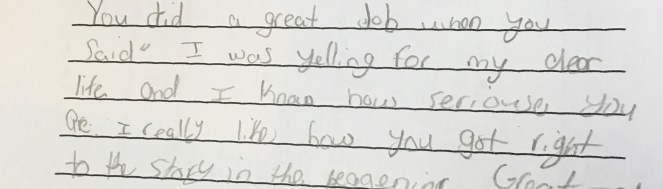 You did a great Job when you
Said" I was yelling for my dear
life and I know how seriouse you
are. I really like how you got right
to the story in the beggening Great